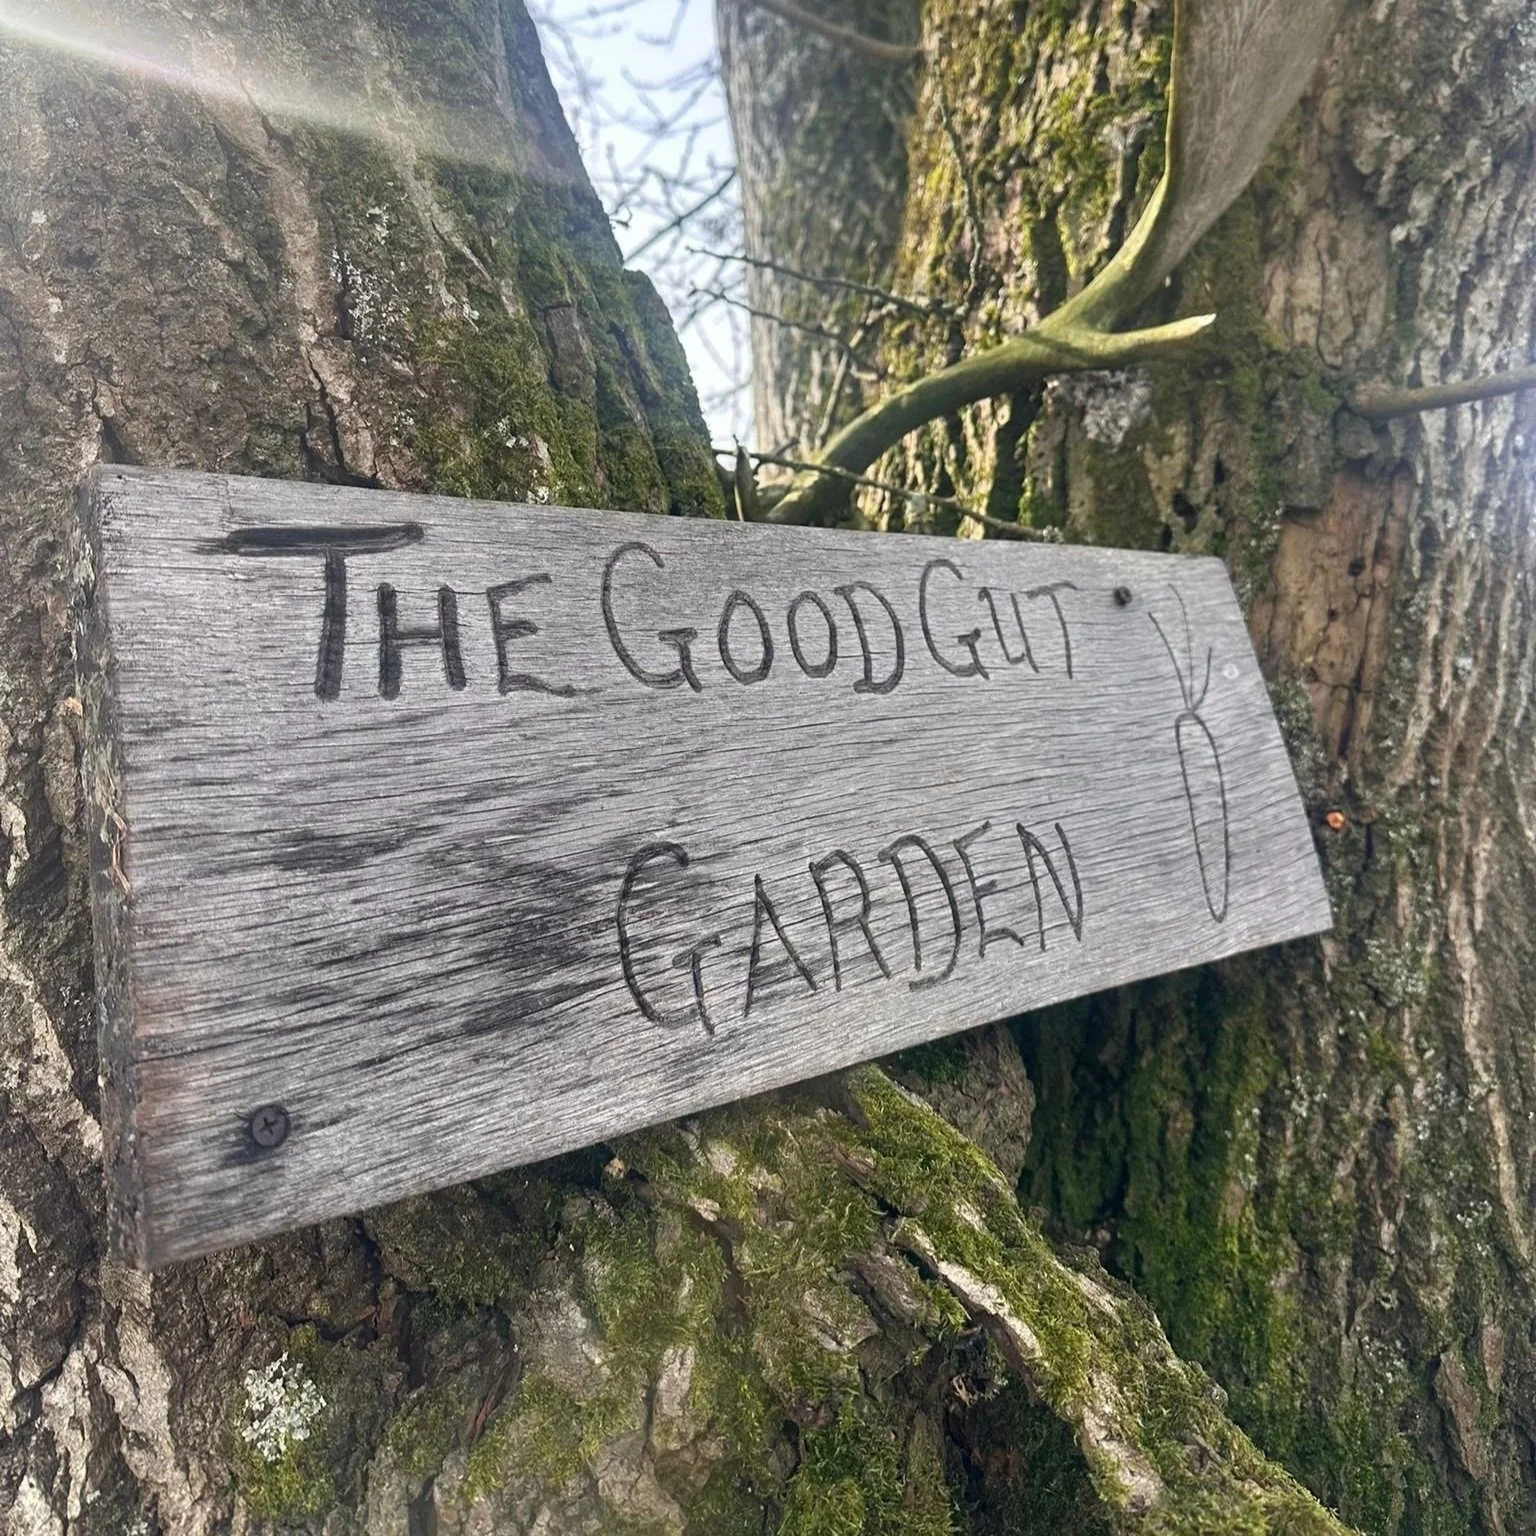 THE GOOD GUT
GARDEN